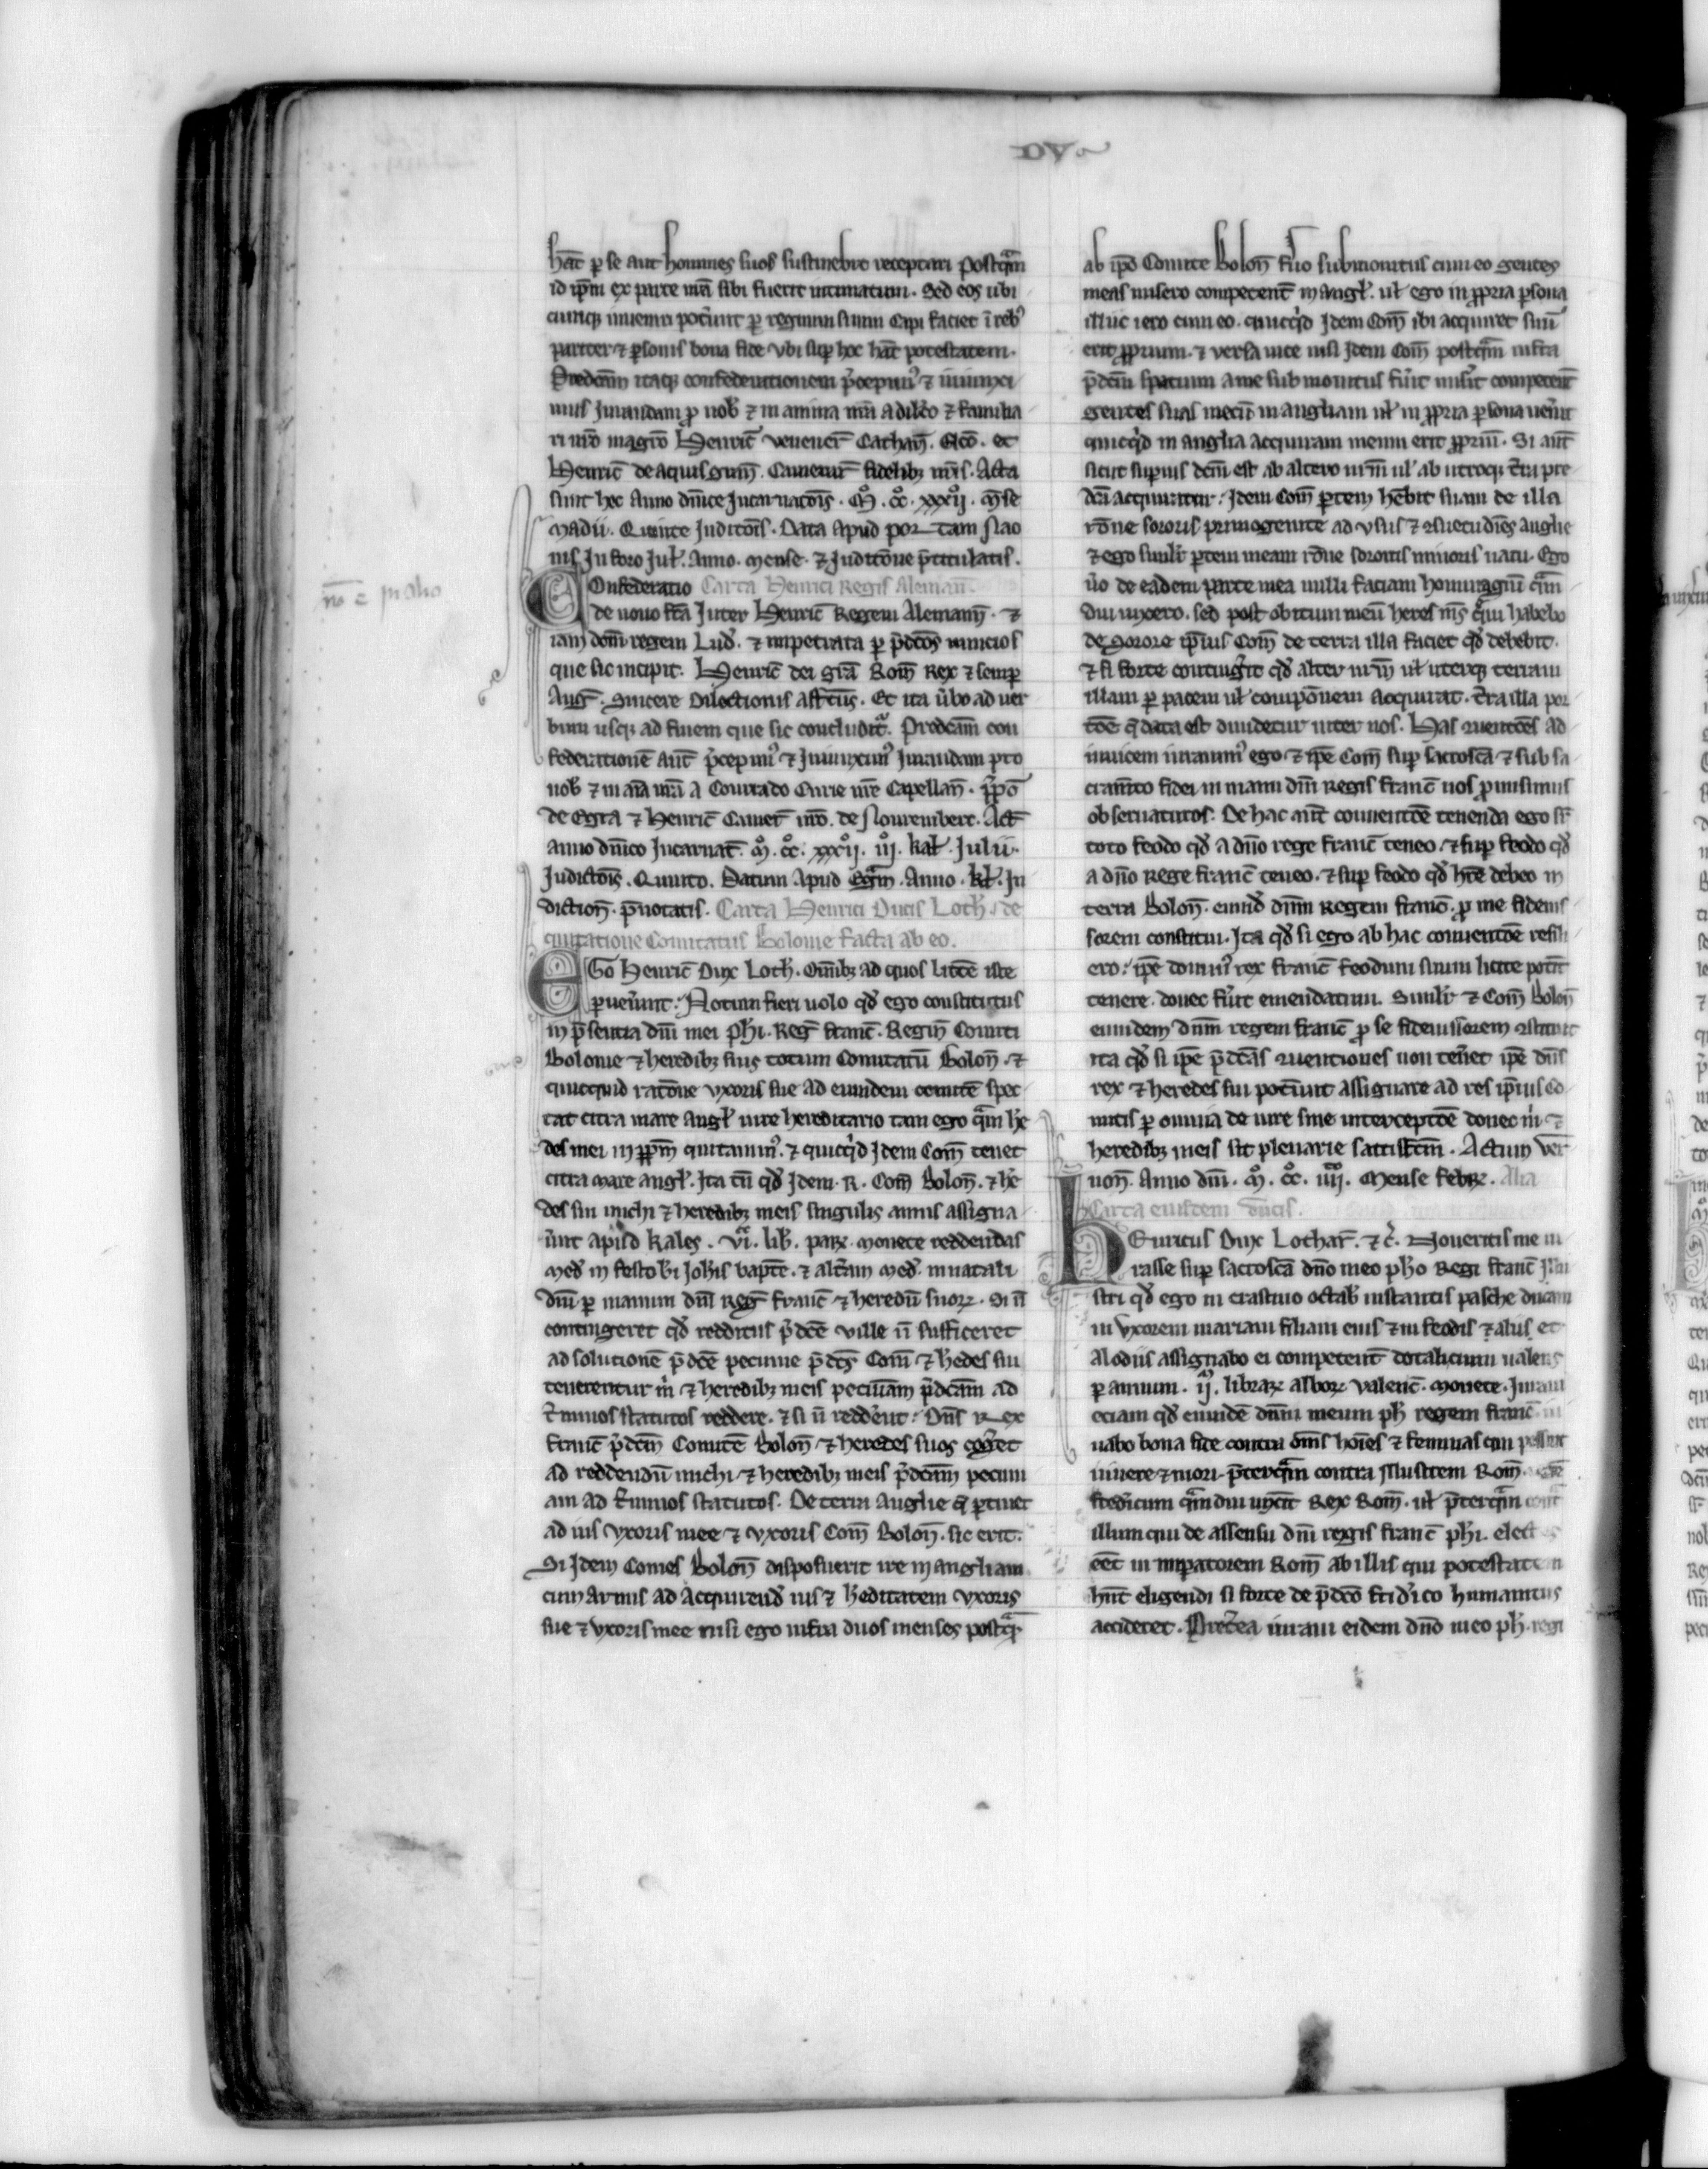 DV
hāt p se aut homines suos sustinebit receptari postq̄m
id ip̄m ex parte nrā sibi fuerit intimatum. Sed eos ubi
cumq; inueniri pot̄unt p regnum suum capi faciet ī reb⁊
pariter ⁊ psonis bona fide vbi sup hoc hāt potestatem.
Predcām itaq; confederationem p̄cepim⁊ ⁊ iniunxi
mus Jurandam ꝓ nob ⁊ in anima nrā a dilc̄o ⁊ familia
ri nrō magrō Henric̄ venener̄ Cathan̄. Et
Henric̄ de aquisgran̄. fidelib; nris. Acta
sunt hec Anno dn̄ice Incarnatōis. M̊. cc̊. xxx̊ij. mēse
madii. Quinte Inditōis. Data apud por tam Nao
nis In foro Jul. Anno. mense. ⁊ Inditōne p̄titulatis.
Confederatio Carta Henrici Regis Aleman̄.
de nouo fcā Inter Henric̄ Regem Alemann̄. ⁊
iam dom̄ regem Lud. ⁊ impetrata p p̄dcōs nuncios
que sic incipit. Henric̄ dei grā Rom̄ Rex ⁊ semp
Aug. Sincere Dilectionis affctūs. Et ita ubo ad uer
bum usq; ad finem que sic concludit̄. Predcām con
federationē aut̄ p̄cepim⁊ ⁊ Iniunxim⁊ Jurandam pro
nob ⁊ in aīa nrā a Conrado Curie nrē Capellan̄.
de Egra ⁊ Henric̄ Camer̄ nrō. de Nourenberc. Act̄
anno dn̄ico Incarnat̄. M̊. cc̊. xxxij. iij. kal. Julii.
Indictōis. Quinto. Datum Apud Egrm̄. Anno. kl. In
diction̄. p̄notatis. Carta Henrici Ducis Loth. de
quitatione Comitatus Bolonie facta ab eo.
EGo Henric̄ Dux Loth. Om̄ib; ad quos littē iste
puen̄int. Notum fieri uolo qd ego constitutus
in p̄sentia dn̄i mei phi. Reḡ franc̄. Regin̄ Comiti
Bolonie ⁊ heredib; eius totum Comitatū Bolon̄. ⁊
quicquid ratōne vxoris sue ad eundem comitē spec
tat citra mare angl iure hereditario tam ego q̄m he
des mei in ppm̄ quitauim⁊. ⁊ quicq̇d Idem Com̄ tenet
citra mare angl. Ita tn̄ qd Idem. R. Com̄ Bolon̄. ⁊ he
des sui michi ⁊ heredib; meis singulis annis assigna
ūint apud kales. vi. lib. paris. monete reddendas
med in festo bi Johis bapte. ⁊ alt̄am med. in natali
dn̄i p manum dn̄i Reḡ franc̄ ⁊ heredū suor. Si ū
contingeret qd redditus p̄dcē ville n̄ sufficeret
ad solutionē p̄dcē pecunie p̄dcs Com̄ ⁊ hedes sui
tenerentur m̄ ⁊ heredib; meis pecuniam p̄dcām ad
t̄minos statutos reddere. ⁊ si n̄ redderent: Dn̄s Rex
franc̄ p̄dcm̄ Comitē Bolon̄ ⁊ heredes suos coḡet
ad reddendū michi ⁊ heredib; meis p̄dcām pecuni
am ad t̄minos statutos. De terra anglie q̄ ptinet
ad ius vxoris mee ⁊ vxoris Com̄ Bolon̄. sic erit.
Si Idem Comes Bolon̄ disposuerit ire in angliam
cum armis ad acquirend ius ⁊ heditatem vxoris
sue ⁊ vxoris mee nisi ego infra duos menses postq̄
ab ipō Comite Bolon̄ fu͛o submonitus cum eo gentes
meas misero competent̄ in angl. ul ego in ppria psona
illuc iero cum eo. quicq̇d Idem Com̄ ibi acquiret suū
erit pprium. ⁊ versa uice nisi Idem Com̄ postq̄m infra
p̄dcm̄ spatium a me submonitus fu͛it mis͛it competent̄
gentes suas mecū in angliam ul in ppria psona uen̄it
quicq̇d in anglia acquiram meum erit ppriū. Si aut̄
sicut superius dcm̄ est ab altero nr̄m ul ab utroq; t̄ra pre
dcā acquiratur: Idem Com̄ ptem hēbit suam de illa
rōne sororis primogenite ad vsus ⁊ ɔsuetudies anglie
⁊ ego simil͛ ptem meam rōne sororis minoris natu. Ego
u͛o de eadem parte mea nulli faciam homiragiū q̄m
diu uixero. sed post obitum meū heres ms̄ q̄m habebo
de Sorore ip̄ius Com̄ de terra illa faciet qd debebit.
⁊ si forte contingit qd alter nr̄m ul uterq; terram
illam p pacem ul compōnem acquirat. t̄ra illa por
tōe q̄ data est diuidetur inter nos. Has ɔuentōes ad
inuicem iurauim⁊ ego ⁊ ip̄e Com̄ sup sacroscā ⁊ sub sa
cramto fidei in manu dn̄i Regis franc̄ nos promisimus
obseruaturos. De hac aut̄ conuentōe tenenda ego sr̄
toto feodo qd a dn̄o rege franc̄ teneo. ⁊ sup feodo qd
a dn̄o Rege franc̄ teneo. ⁊ sup feodo qd hr̄e debeo in
terra Bolon̄. eund dn̄m Regem franc̄. ꝓ me fideius
sorem constitui. Ita qd si ego ab hac conuentōe resili
ero: ip̄e domin⁊ rex franc̄ feodum suum licite pot̄it
tenere. donec fu͛it emendatum. Simil͛ ⁊ Com̄ Bolon̄
eundem dn̄m regem franc̄ ꝓ se fideiussorem ɔstituit
ita qd si ip̄e p̄dcās ɔuentiones non ten̄et ip̄e dn̄s
rex ⁊ heredes sui pot̄unt assignare ad res ip̄ius co
mitis p omnia de iure sine interceptōe donec m̄ ⁊
heredib; meis sit plenarie satisfcm̄. Actum Ver
non̄. Anno dn̄i. M̊. cc̊. iiij̊. Mense febr. Alia
Carta eiusdem ducis.
HEnricus Dux Lothar̄. ⁊c̄. Noueritis me iu
rasse sup sacroscā dn̄o meo pho Regi franc̄ Illu
stri qd ego in crastino octab instantis pasche ducam
in vxorem mariam filiam eius ⁊ in feodis ⁊ aliis et
alodiis assignabo ei competent̄ dotalicium ualens
p annum. ij. librar albor valenc̄. monete. Juraui
eciam qd eundē dn̄m meum ph regem franc̄ iu
uabo bona fide contra om̄s hoīes ⁊ feminas qui possunt
uiuere ⁊ mori. p̄terq̄m contra Illustrem Rom̄.
fredericum q̄m diu uix͛it Rex Rom̄. ul p̄terq̄m cont̄
illum qui de assensu dn̄i regis franc̄ phi. electus
eet̄ in imperatorem Rom̄ ab illis qui potestatem
hn̄t eligendi si forte de p̄dcō frid͛ico humanitus
accideret. Pret̄ea iuraui eidem dn̄o meo ph. regi